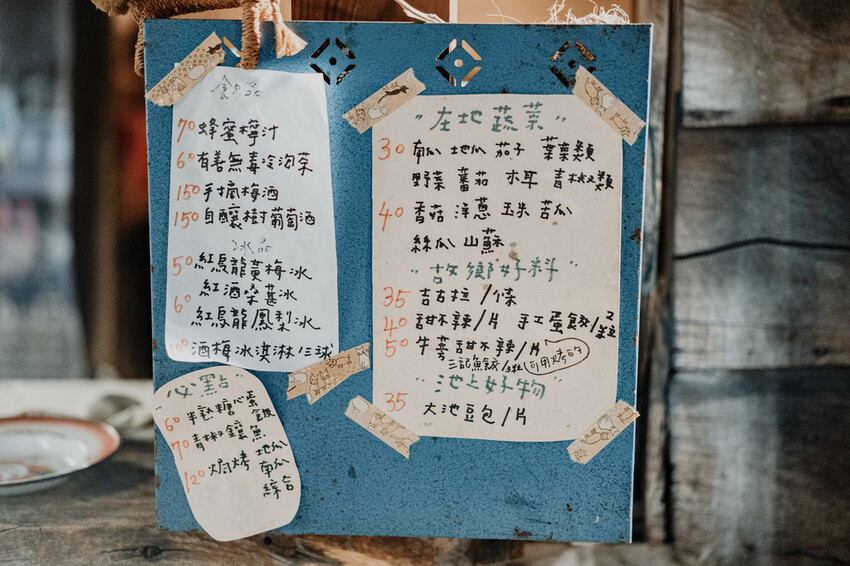 飲品
70 蜂蜜檸汁
60 有善無毒冷泡茶
150 手摘梅酒
150 自釀樹葡萄酒
冰品
50 紅烏龍黃梅冰
紅酒桑葚冰
60 紅烏龍/鳳梨冰
酒梅冰淇淋/三球
必點
60 半熟糖心蛋
70 青椒鑲魚
120 焗烤 地瓜
南瓜
綜合
"在地蔬菜"
30 南瓜 地瓜 茄子 葉菜類
野菜 蕃茄 木耳 青椒類
40 香菇 洋蔥 玉米 苦瓜
絲瓜 山蘇
"故鄉好料"
35 吉古拉/條
40 甜不辣/片 手工蛋餃/2粒
50 牛蒡甜不辣/片
三記魚餃/3粒 可用烤的
"池上好物"
35 大池豆包/片